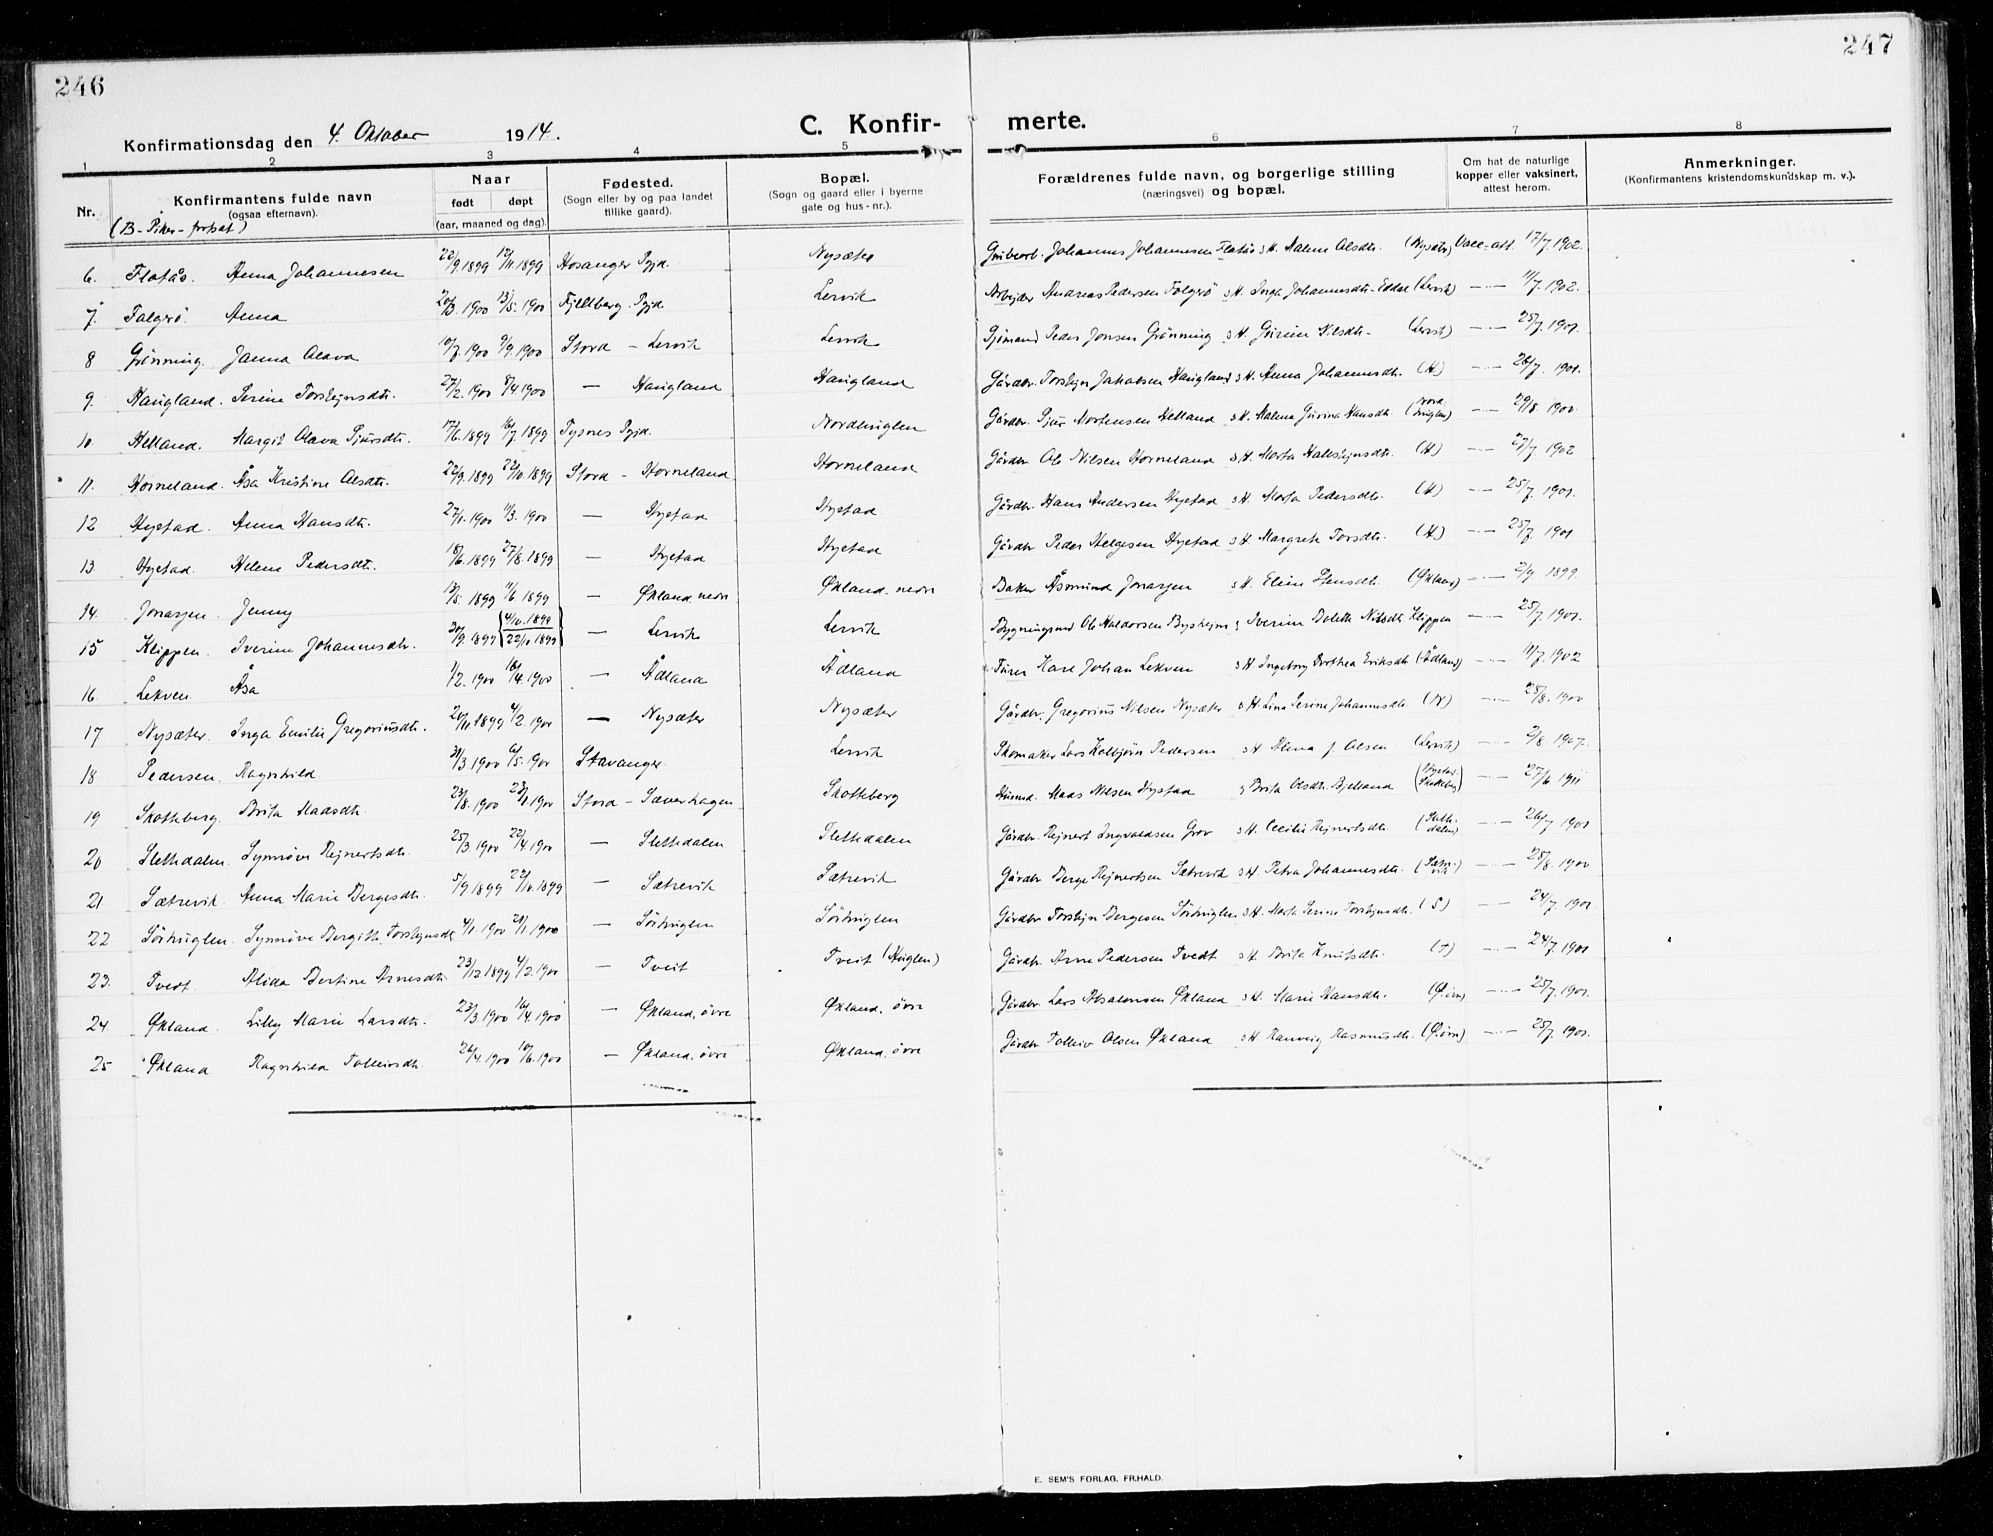 246
247
Konfirmationsdag den 4. Oktober 1914.
C. Konfir-
merte.
1 2 3 4 5 6 7 8
Nr.
Konfirmantens fulde navn
(ogsaa efternavn).
(B-Piker-fortsat)
Naar
født døpt
(aar, maaned og dag).
Fødested.
(Sogn eller by og paa landet
tillike gaard).
Bopæl.
(Sogn og gaard eller i byerne
gate og hus-nr.).
Forældrenes fulde navn, og borgerlige stilling
(næringsvei) og bopæl.
Om hat de naturlige
kopper eller vaksinert,
attest herom.
Anmerkninger.
(Konfirmantens kristendomskundskap m. v.).
6. Flatås. Anna Johannesen 22/9.1899 12/11.1899 Hosanger Pgjd. Nysæter Grubearb. Johannes Johannesen Flatås & H. Malene Olsdtr. (Nysætr) Vacc-att. 17/7 1902.
7. Folgerö. Anna 20/3.1900 13/5.1900 Fjellberg Pgjd Lervik Arbejder Andreas Pedersen Folgerö & H. Inga Johannesdtr. Eddal (Lervik) —"— 11/7 1902.
8 Grønning. Janna Olava 10/7.1900 9/9.1900 Stord - Lervik Lervik Sjömand Peder Jonsen Grønning & H. Gurine Nilsdtr- (Lervik) —"— 25/7.1901.
9. Haugland. Serine Torstejnsdtr. 27/2.1900 8/4.1900 — Haugland Haugland Gårdbr. Torstejn Jakobsen Haugland & H. Anna Johannesdtr. (H) —"— 26/7 1901.
10. Helland. Margit Olava Sjursdtr. 17/6.1899 16/7.1899 Tysnes Pgjd. Nordhuglen Gårdbr. Sjur Mortensen Helland & H. Malena Gurina Hansdtr. (Nord huglen) —"— 29/8.1900.
11. Horneland. Åsa Kristine Olsdtr. 22/9.1899 22/10.1899 Stord - Horneland Horneland Gårdbr. Ole Nilsen Horneland & H. Marta Halstejnsdtr. (H) —"— 27/7 1902
12 Hystad. Anna Hansdtr. 27/1.1900 11/3.1900 — Hystad Hystad Gårdbr. Hans Andersen Hystad & H. Marta Pedersdtr. (H) —"— 25/7.1901.
13. Hystad. Helene Pedersdtr. 18/6.1899 27/8.1899 — Hystad Hystad Gårdbr Peder Helgesen Hystad & H. Margrete Torsdtr. (H) —"— 25/7 1901
14. Jonassen Jenny 13/5.1899 11/6.1899 — Økland. nedre Økland. nedre Baker Åsmund Jonassen & H. Eline (Økland) —"— 2/9 1899.
15 Klippen. Iverine Johannesdtr. 30/9.1899 {4/10.1899 22/10.1899} — Lervik Lervik Bygningssnd Ole Haldorsen & Iverine Bolette Nilsdtr Klippen —"— 25/7.1901.
16 Lekven. Åsa 1/2.1900 16/4.1900 — Ådland Ådland Karl Johan Lekven & H Ingeborg Dorthea Eriksdtr (Ådland) —"— 11/7.1902
17 Nysæter. Inga Emilie Gregoriusdtr. 20/11.1899 4/2.1900 — Nysæter Nysæter Gårdbr. Gregorius Nilsen Nysæter & H Lina Serine Johannesdtr (N) —"— 28/8.1900
18 Pedersen. Ragnhild 31/3.1900 6/5.1900 Stavanger. Lervik Skomaker Lars Kolbjörn Pedersen & H Alma J. Olsen (Lervik) —"— 2/8 1907.
19 Skotteberg. Brita Maasdtr. 23/8.1900 23/1900 Stord - Sæverhagen Skotteberg Husmd. Maas Nilsen Hystad & Brita Olsdtr. Bjelland (Hystad. Skotteberg) —"— 27/6 1911
20 Slettedalen. Synnöve Rejnertsdtr. 25/3.1900 22/4.1900 — Slettedalen Slettedalen Gårdbr. Rejnert Ingvaldsen Grov & H. Cecilie Rejnertsdtr. (Slette dalen) —"— 26/7 1901
21 Sætrevik. Anna Marie Bergesdtr. 5/9.1899 22/10.1899 — Sætrevik Sætrevik Gårdbr. Berge Rejnertsen Sætrevik & H. Petra Johannesdtr. (Sætre vik) —"— 28/8.1900
22 Sörhuglen. Synnöve Bergitte Torstejnsdtr 4/1.1900 21/1.1900 — Sörhuglen Sörhuglen Gårdbr Torstejn Bergesen Sörhuglen & H. Marta Serine Torstejnsdtr. (S) —"— 24/7.1901.
23. Tvedt. Alida Bertine Arnesdtr 23/12.1899 4/2.1900 — Tveit Tveit (Huglen) Gårdbr. Arne Pedersen Tvedt & H. Brita Knutsdtr. (T) —"— 24/7 1901
24 Økland. Lilly Marie Larsdtr. 23/3.1900 16/4.1900 — Økland, övre Økland, övre Gårdbr. Lars Absalonsen Økland & H. Marie Hansdtr. (Ø. övr) —"— 25/7.1901.
25 Økland Ragnhild Tolleivsdtr. 26/4.1900 10/6.1900 — Økland, övre Økland, övre Gårdbr Tolleiv Olsen Økland & H Ranveig Rasmusdtr. (Ø. övr) —"— 25/7.1901.
E. SEM'S FORLAG. FR.HALD.